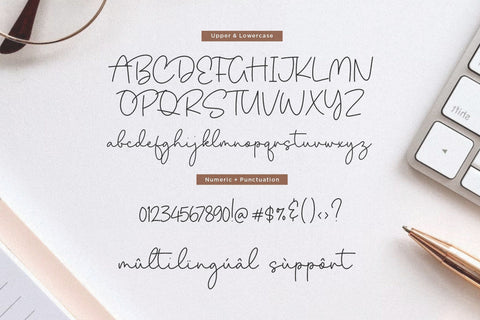 Upper & Lowercase
ABCDEFGHIJKLMN
OPQRSTUVWXYZ
abcdefghijklmnopqrstuvwxyz
Numeric + Punctuation
01234567890!@#$%&()‹›?
mûltilingúâl sùppôrt
shift